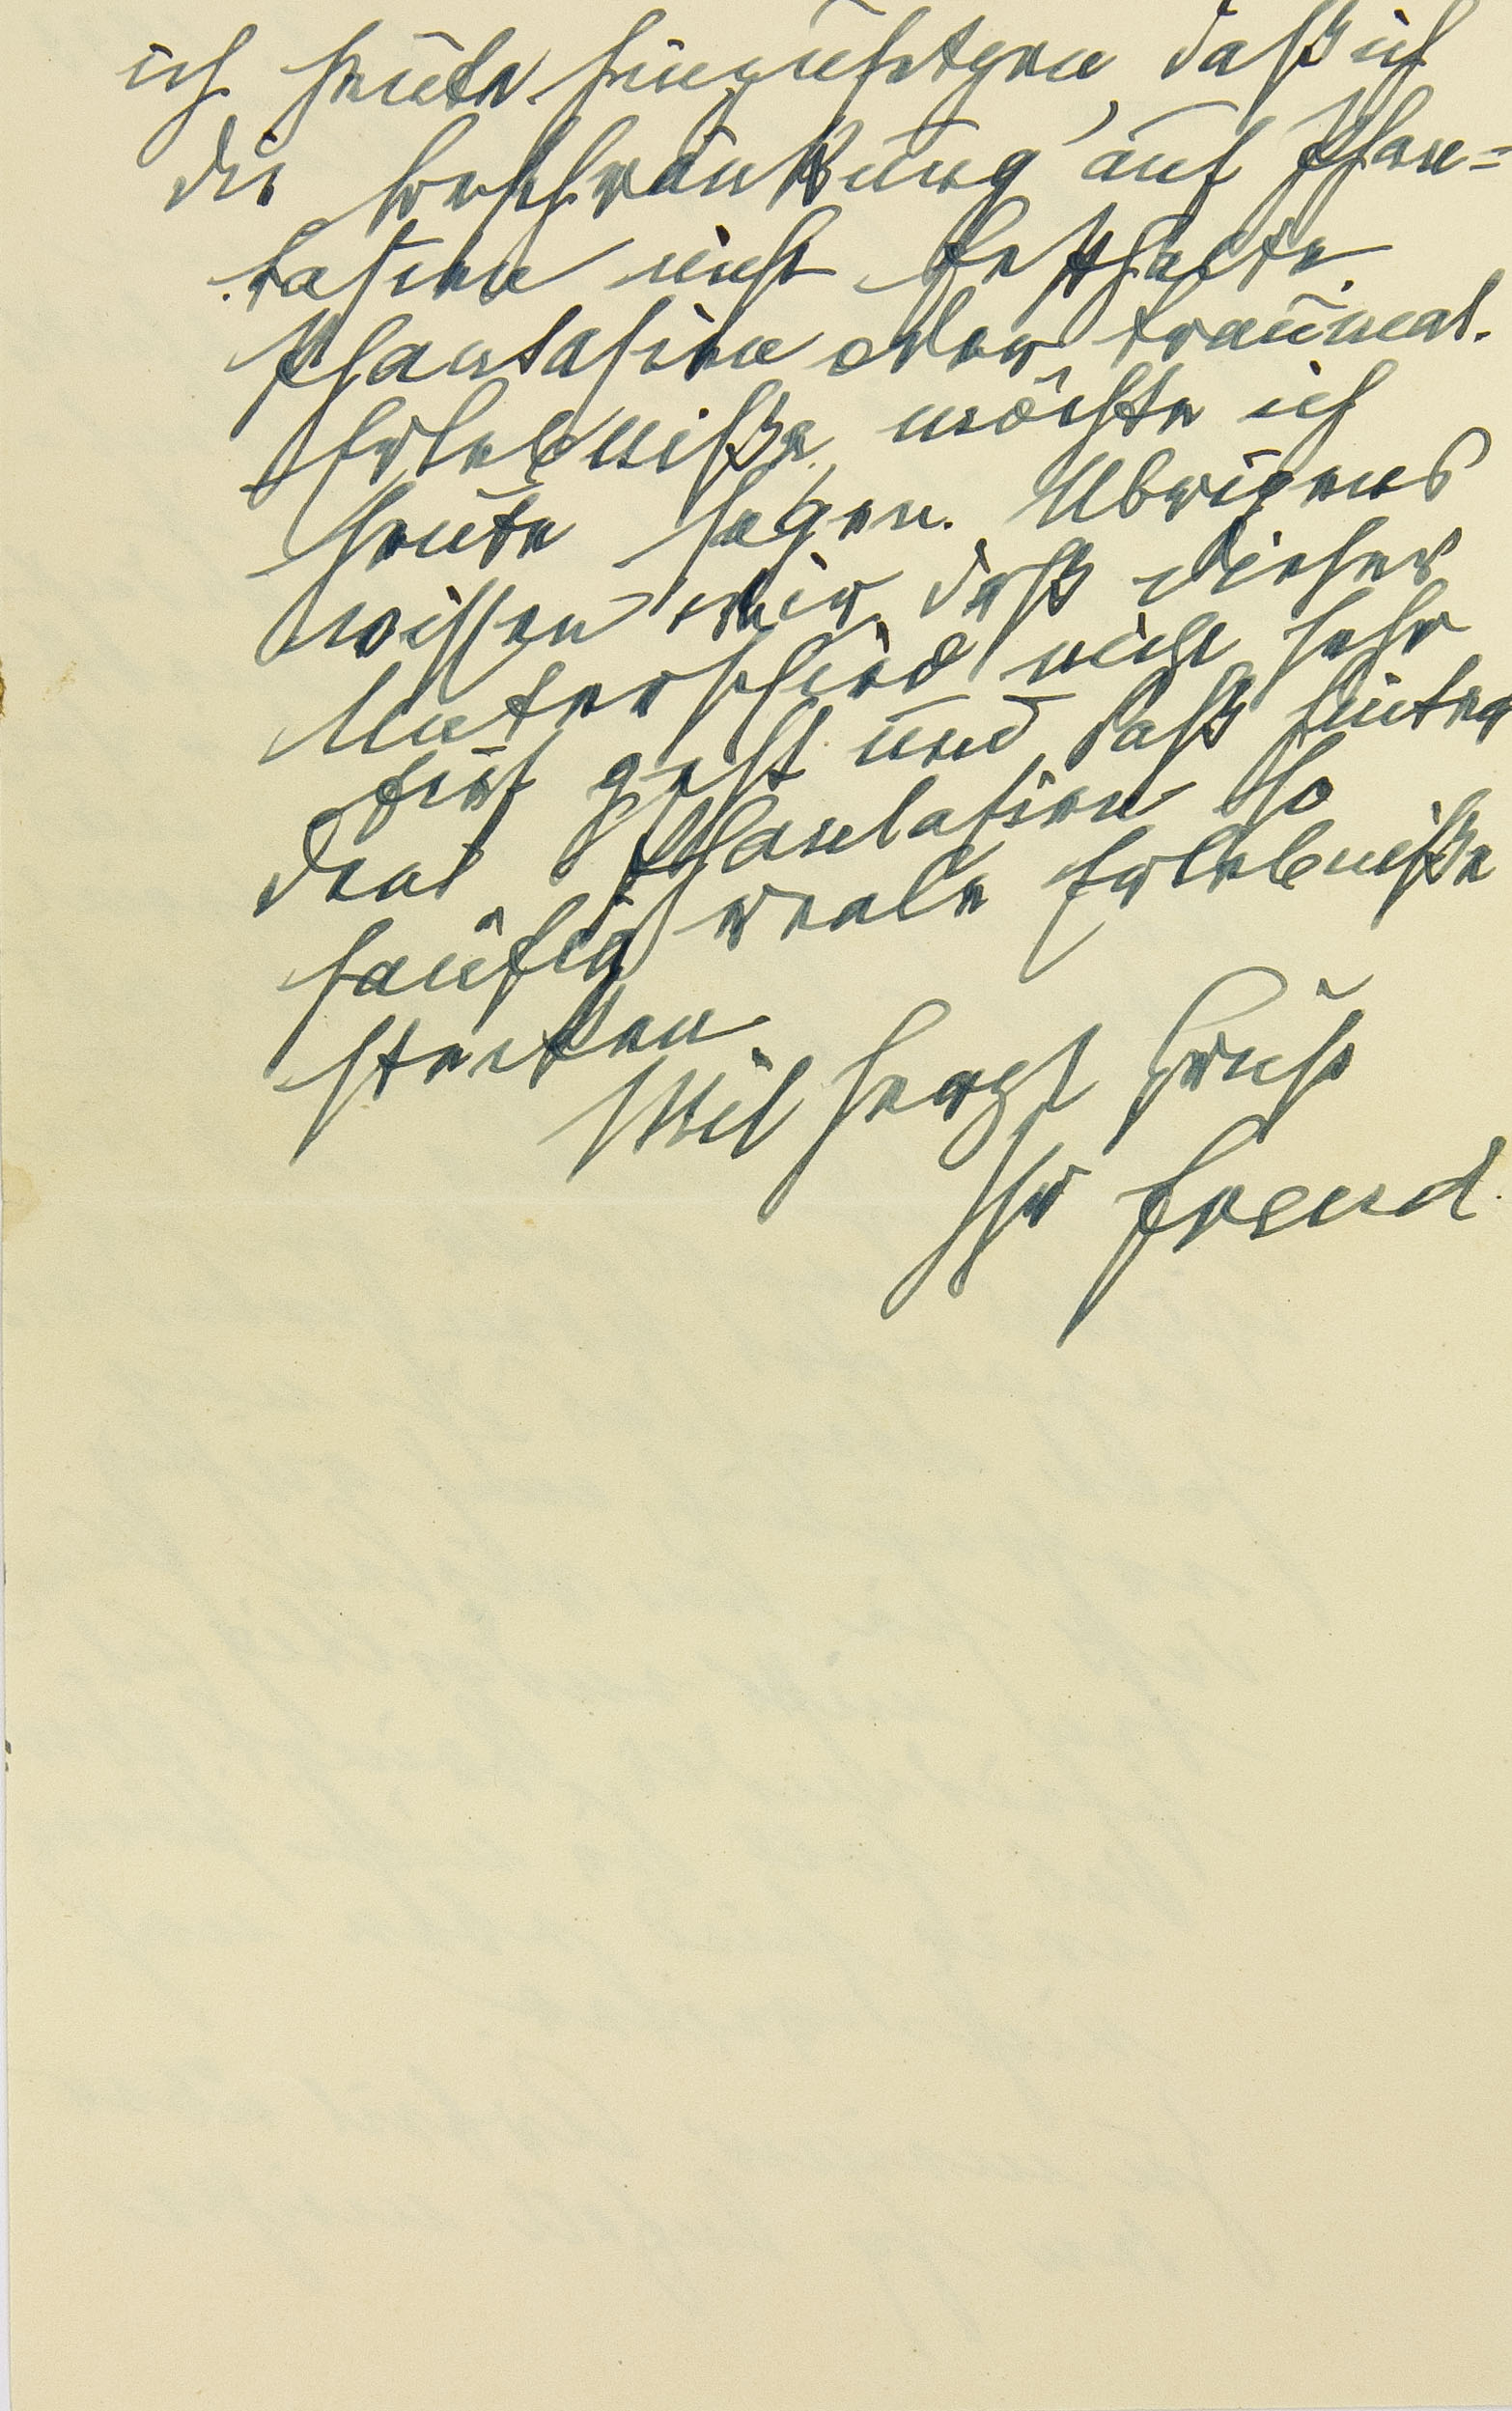 ich heute hinzusetzen, daß ich
die Beschränkung auf Phan=
tasien nicht festhalte.
Phantasien oder traumat.
Erlebniße, möchte ich
heute sagen. Übrigens
wissen wir, daß dieser
Unterschied nicht sehr
tief geht und daß hinter
den Phantasien so
häufig reale Erlebniße
stecken.
Mit herzl Gruß
Ihr Freud